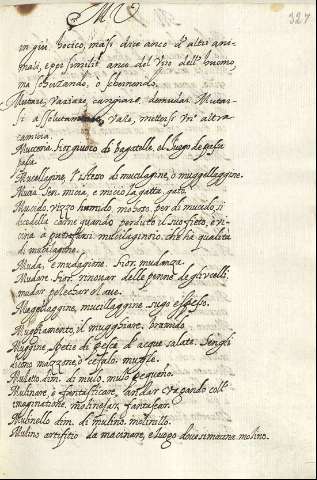 MV
327
in giù bocico, mà si dice anco d'altri ani-
mali, e per similit. anco del viso dell'huomo,
ma scherzando, ò schernendo.
Mutare, variare, cangiare, demudar. Mutar-
si assolutamente, vale, mettersi un'altra
camicia.
Mucceria. fior. giuoco di bagattelle, el luego de passa
passa.
Mucellagine, l'istesso di mucilagine, ò muggellaggine.
Mucia. Sen. micia, e micio la gatta, gato.
Mucido, vizzo humido, mohoso. per di mucido, si
dice della carne quando perduto il suo fiore, è vi-
cina à putrefarsi. mucilaginoso. che hà qualità
di mucilagine.
Muda, e mudagione. fior. mudanza.
Mudare. fior. rinovar delle penne de gli vcelli
mudar, pelechar el ave.
Mugellaggine, mucillaggine. sugo espesso.
Mugghiamento, il mugghiare, bramido.
Muggine, spetie di pesce d'acqua salata. Sen. gli
dicono mazzone, ò cefalo, mugle.
Muletto. dim. di mulo. mulo pequeño.
Mulinare, è fantasticare, andar vagando coll'
imaginatione. molinejar, fantasear.
Mulinello. dim. di mulino. molinillo.
Mulino. artifitio da macinare, e luogo dove si macina. molino.